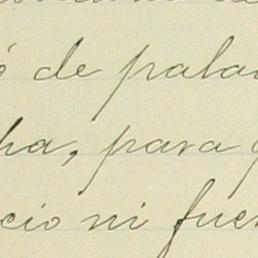 ó de palac
ha, para q
cio ni fuer